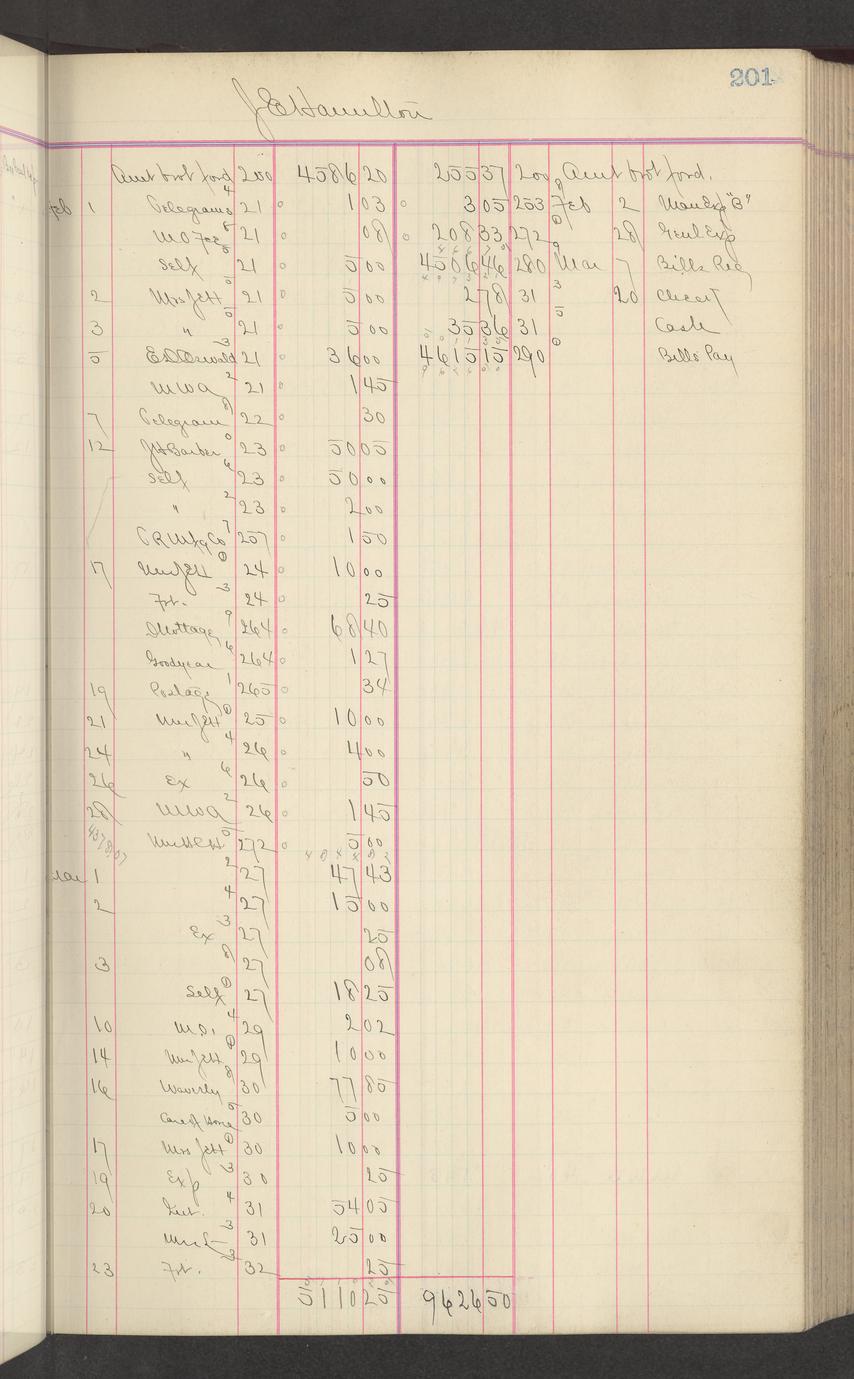 201
J E Hamilton
Amt brot ford 200 4586 20 255 37 200 Amt brot ford.
Feb 1 Telegrams 21 1 03 3 05 253 Feb 2 Man Exp "B"
M O Fee 21 08 208 33 272 28 Genl Exp
Self 21 5 00 4506 46 280 Mar 7 Bills Rec
2 Mrs Jett 21 5 00 2 78 31 20 Chcart
3 " 21 5 00 35 36 31 Cash
5 E D Oswald 21 36 00 4615 15 290 Bills Pay
M W A 21 1 45
7 Telegram 22 30
12 J H Barber 23 50 05
Self 23 50 00
" 23 2 00
C R Mfg Co 257 1 50
17 Mrs Jett 24 10 00
Frt. 24 25
D Mottage 264 68 40
Goodyear 264 1 27
19 Postage 265 34
21 Mrs Jett 25 10 00
24 " 26 4 00
26 Ex 26 50
28 M W A 26 1 45
272 5 00
4 8 4 4 8 2
Mar 1 27 47 43
2 27 15 00
Ex 27 25
3 27 08
Self 27 18 25
10 M.O. 29 2 02
14 Mrs Jett 29 10 00
16 Waverly 30 77 85
30 5 00
17 Mrs Jett 30 10 00
19 Exp 30 25
20 31 54 05
31 25 00
23 Frt. 32 25
5110 25 9626 50